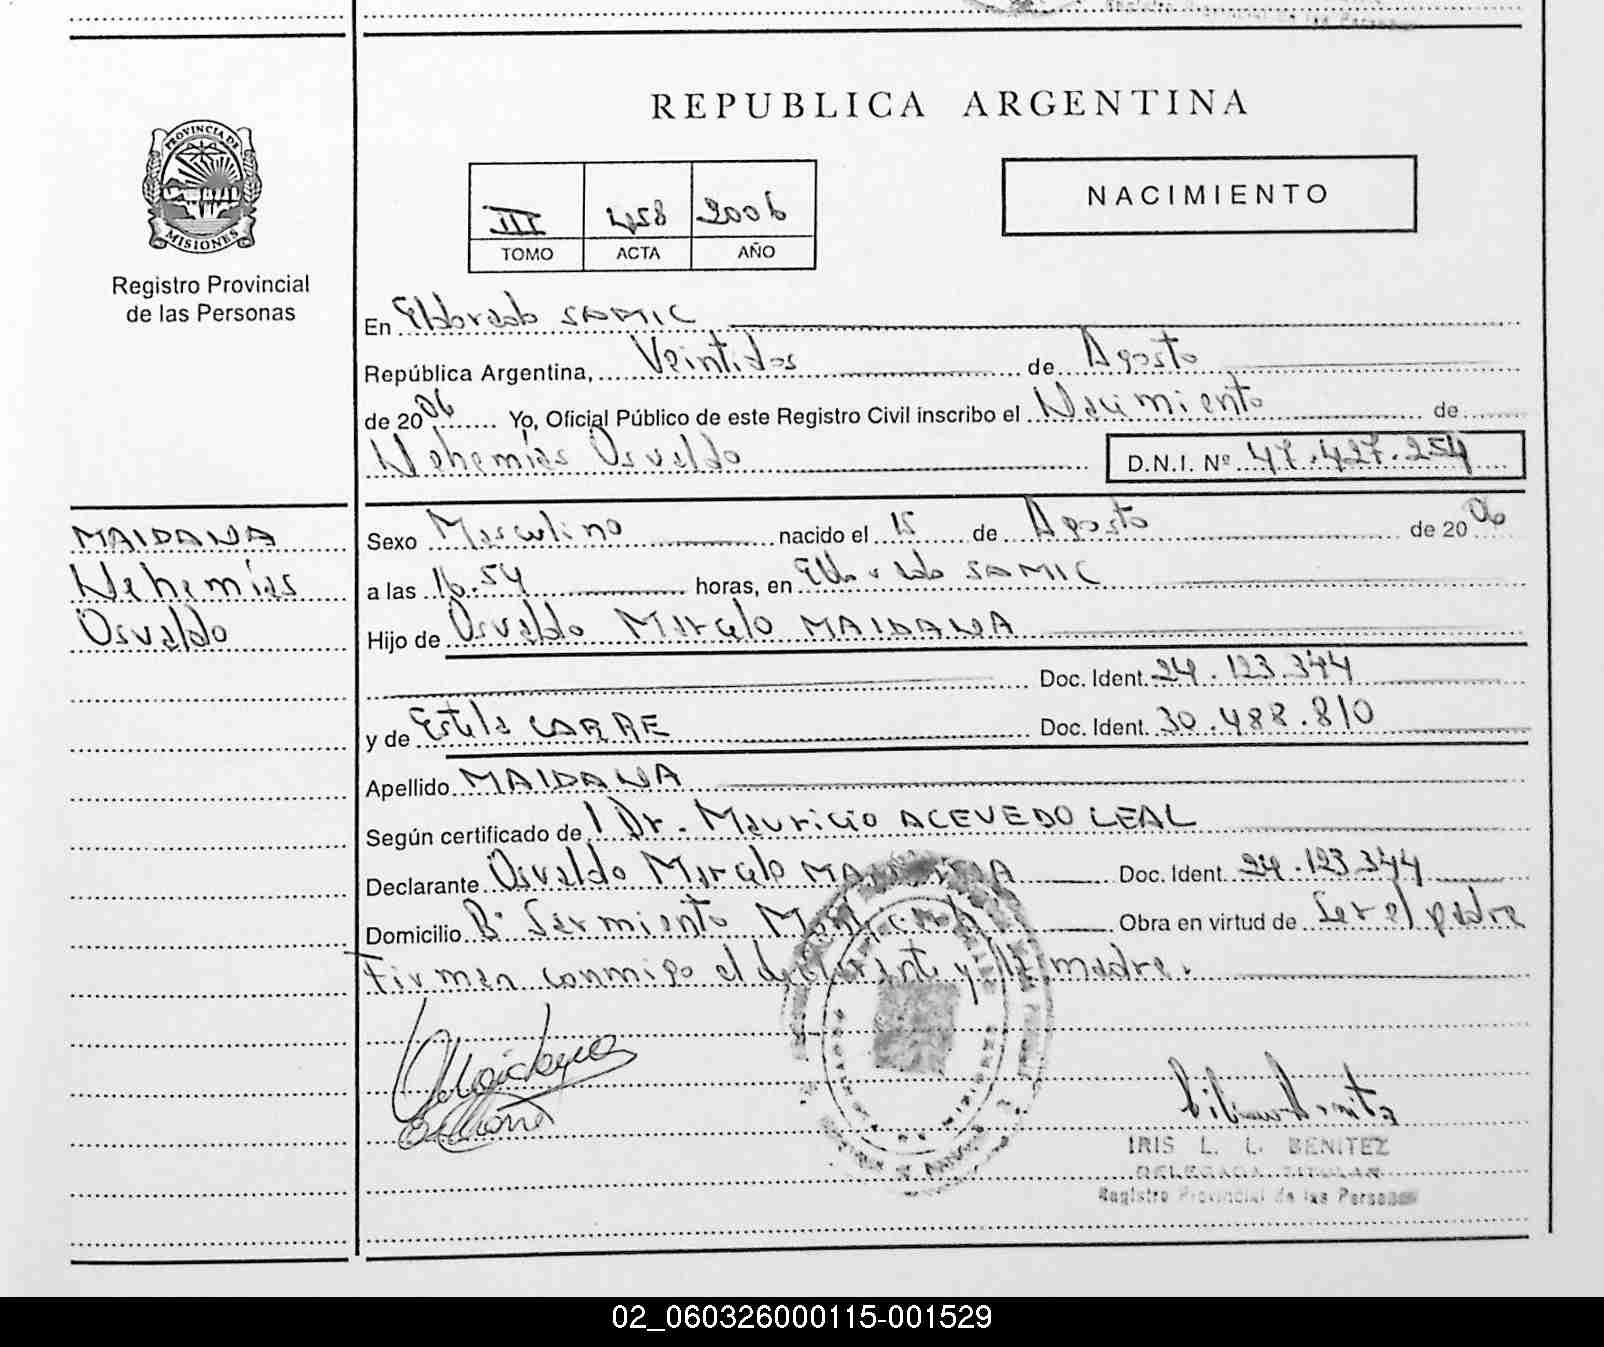 REPUBLICA ARGENTINA
PROVINCIA DE
MISIONES
Registro Provincial
de las Personas
NACIMIENTO
III 458 2006
TOMO ACTA AÑO
En Eldorado SAMIC
República Argentina, Veintidos de Agosto
de 2006 Yo, Oficial Público de este Registro Civil inscribo el Nacimiento de
Nehemías Osvaldo D.N.I. Nº 47.427.254
MAIDANA
Nehemías
Osvaldo
Sexo Masculino nacido el 15 de Agosto de 2006
a las 16.54 horas, en Eldorado SAMIC
Hijo de Osvaldo Marcelo MAIDANA
Doc. Ident. 24.123.344
y de Estela CARRE Doc. Ident. 30.488.810
Apellido MAIDANA
Según certificado de l Dr. Mauricio ACEVEDO LEAL
Declarante Osvaldo Marcelo MAIDANA Doc. Ident. 24.123.344
Domicilio Bº Sarmiento Obra en virtud de Ser el padre
Firman conmigo el declarante y la madre.
IRIS L. L. BENITEZ
DELEGADA TITULAR
Registro Provincial de las Personas
02_060326000115-001529